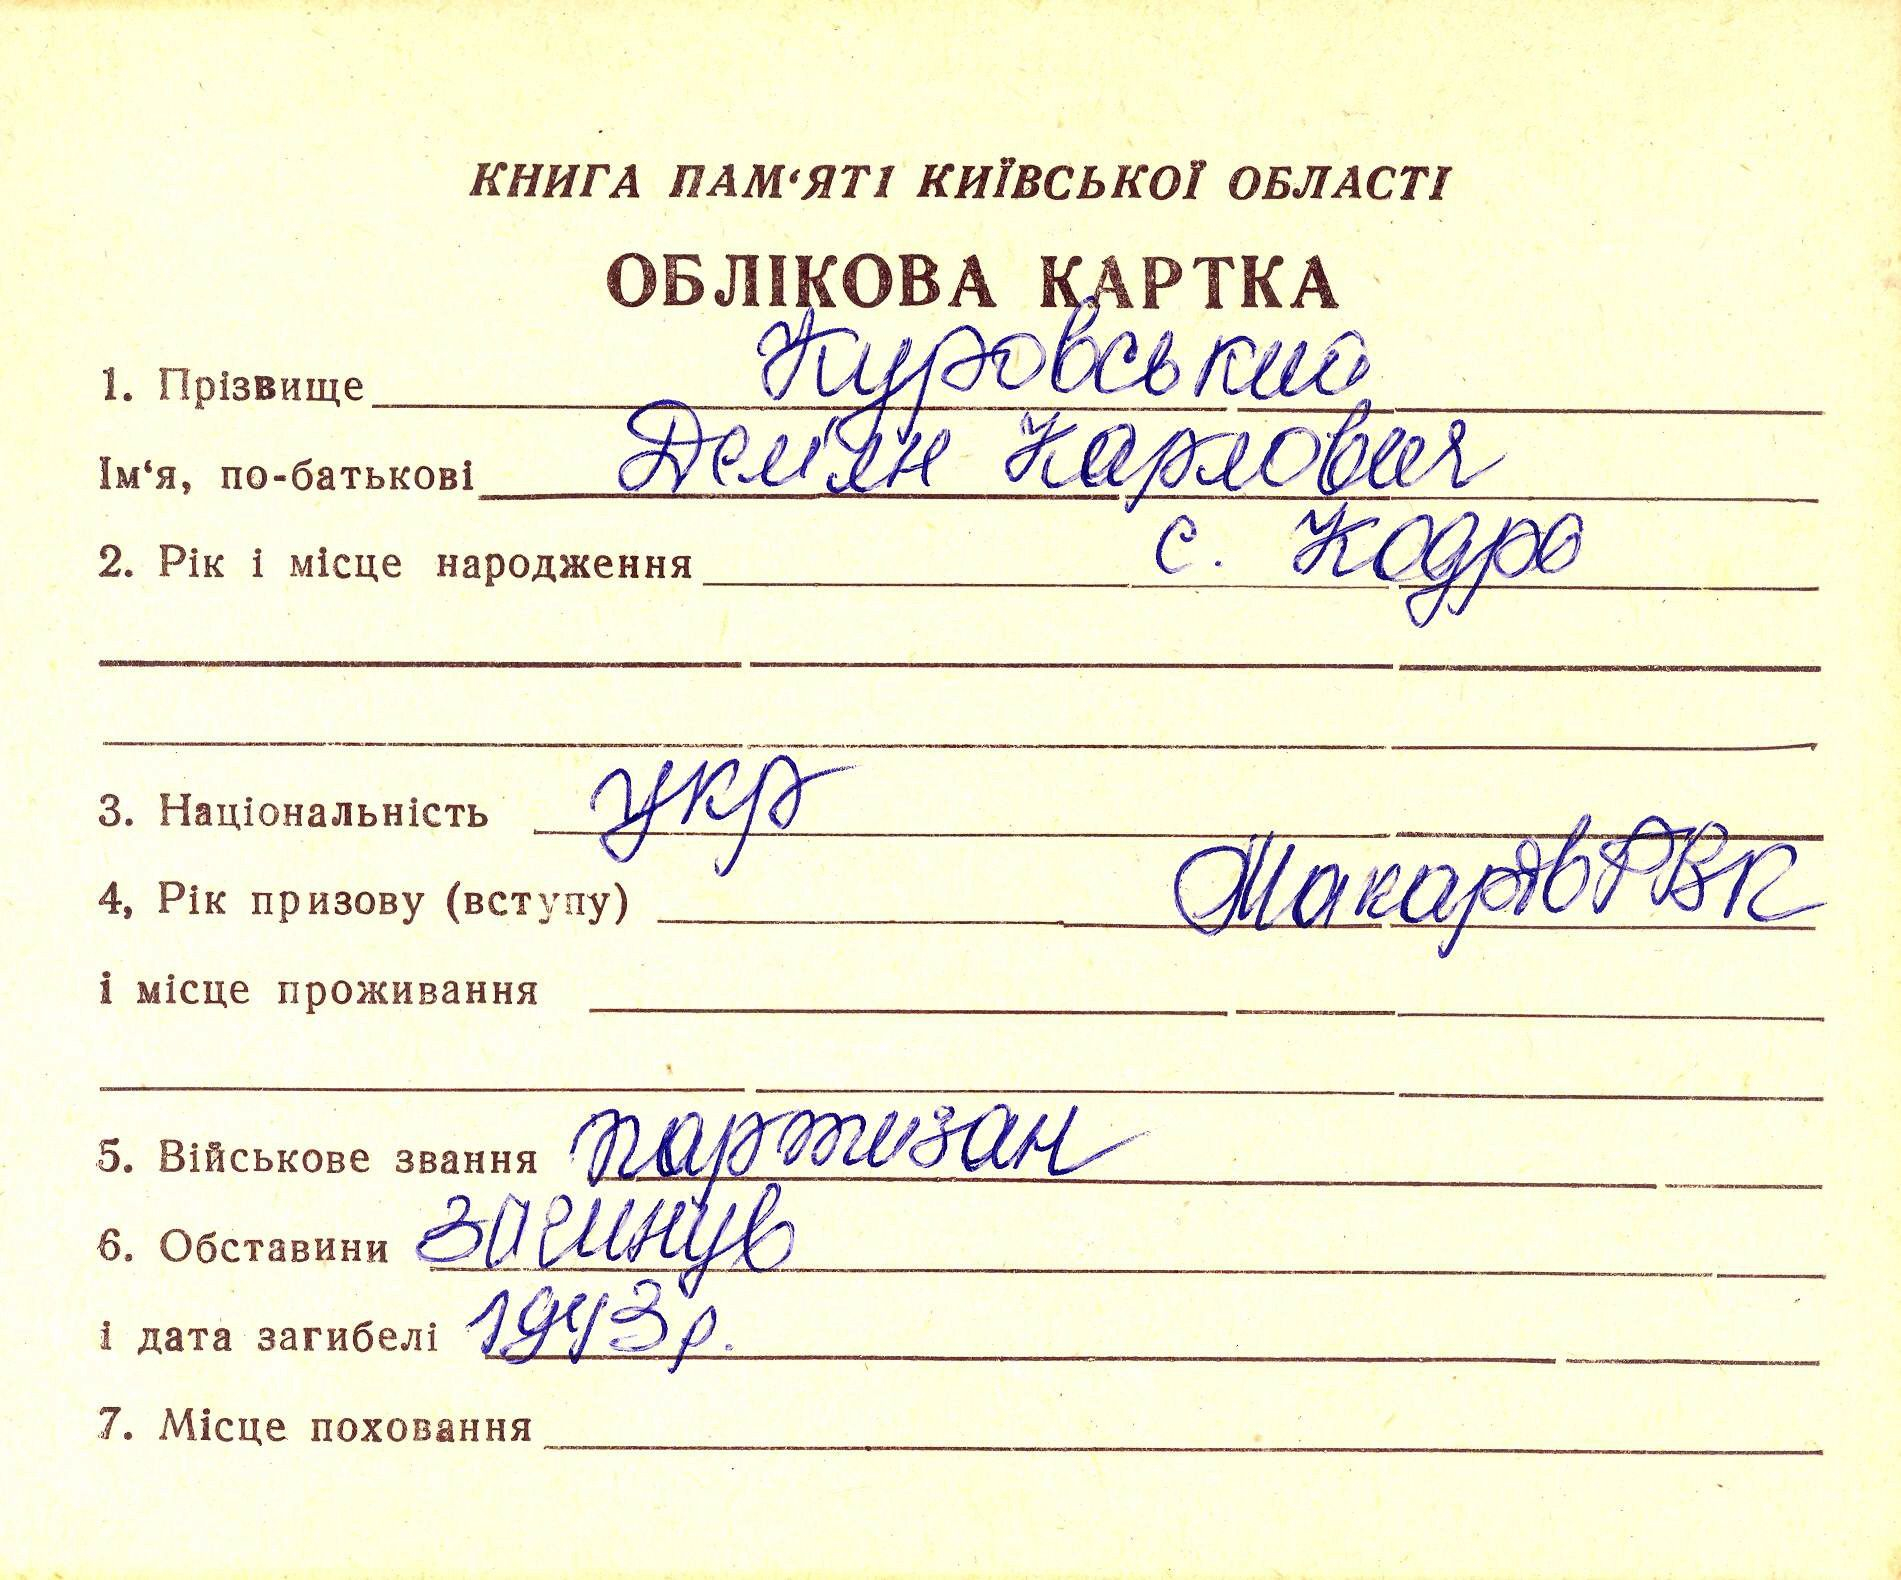 КНИГА ПАМ‘ЯТІ КИЇВСЬКОЇ ОБЛАСТІ
ОБЛІКОВА КАРТКА
1. Прізвище Куровський
Ім‘я, по-батькові Дем'ян Карлович
2. Рік і місце народження с. Кодра
3. Національність укр
4, Рік призову (вступу) Макарів РВК
і місце проживання
5. Військове звання партизан
6. Обставини загинув
і дата загибелі 1943 р.
7. Місце поховання